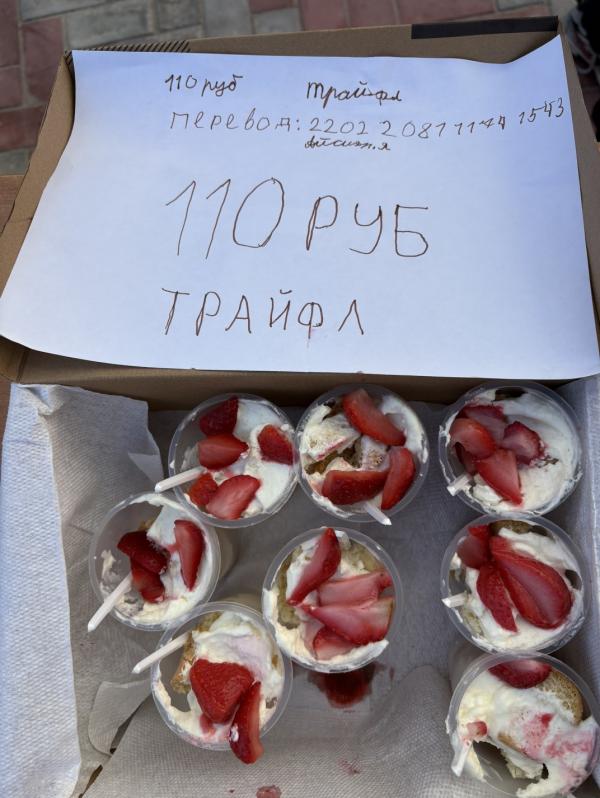 110 руб трайфл
перевод: 2202 2081 1144 1543
110 РУБ
ТРАЙФЛ